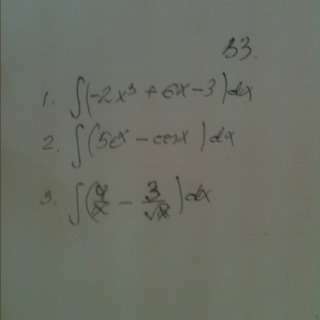 33.
1. ∫(-2x³ + 6x - 3)dx
2. ∫(5eˣ - cosx)dx
3. ∫(4/x - 3/√x)dx